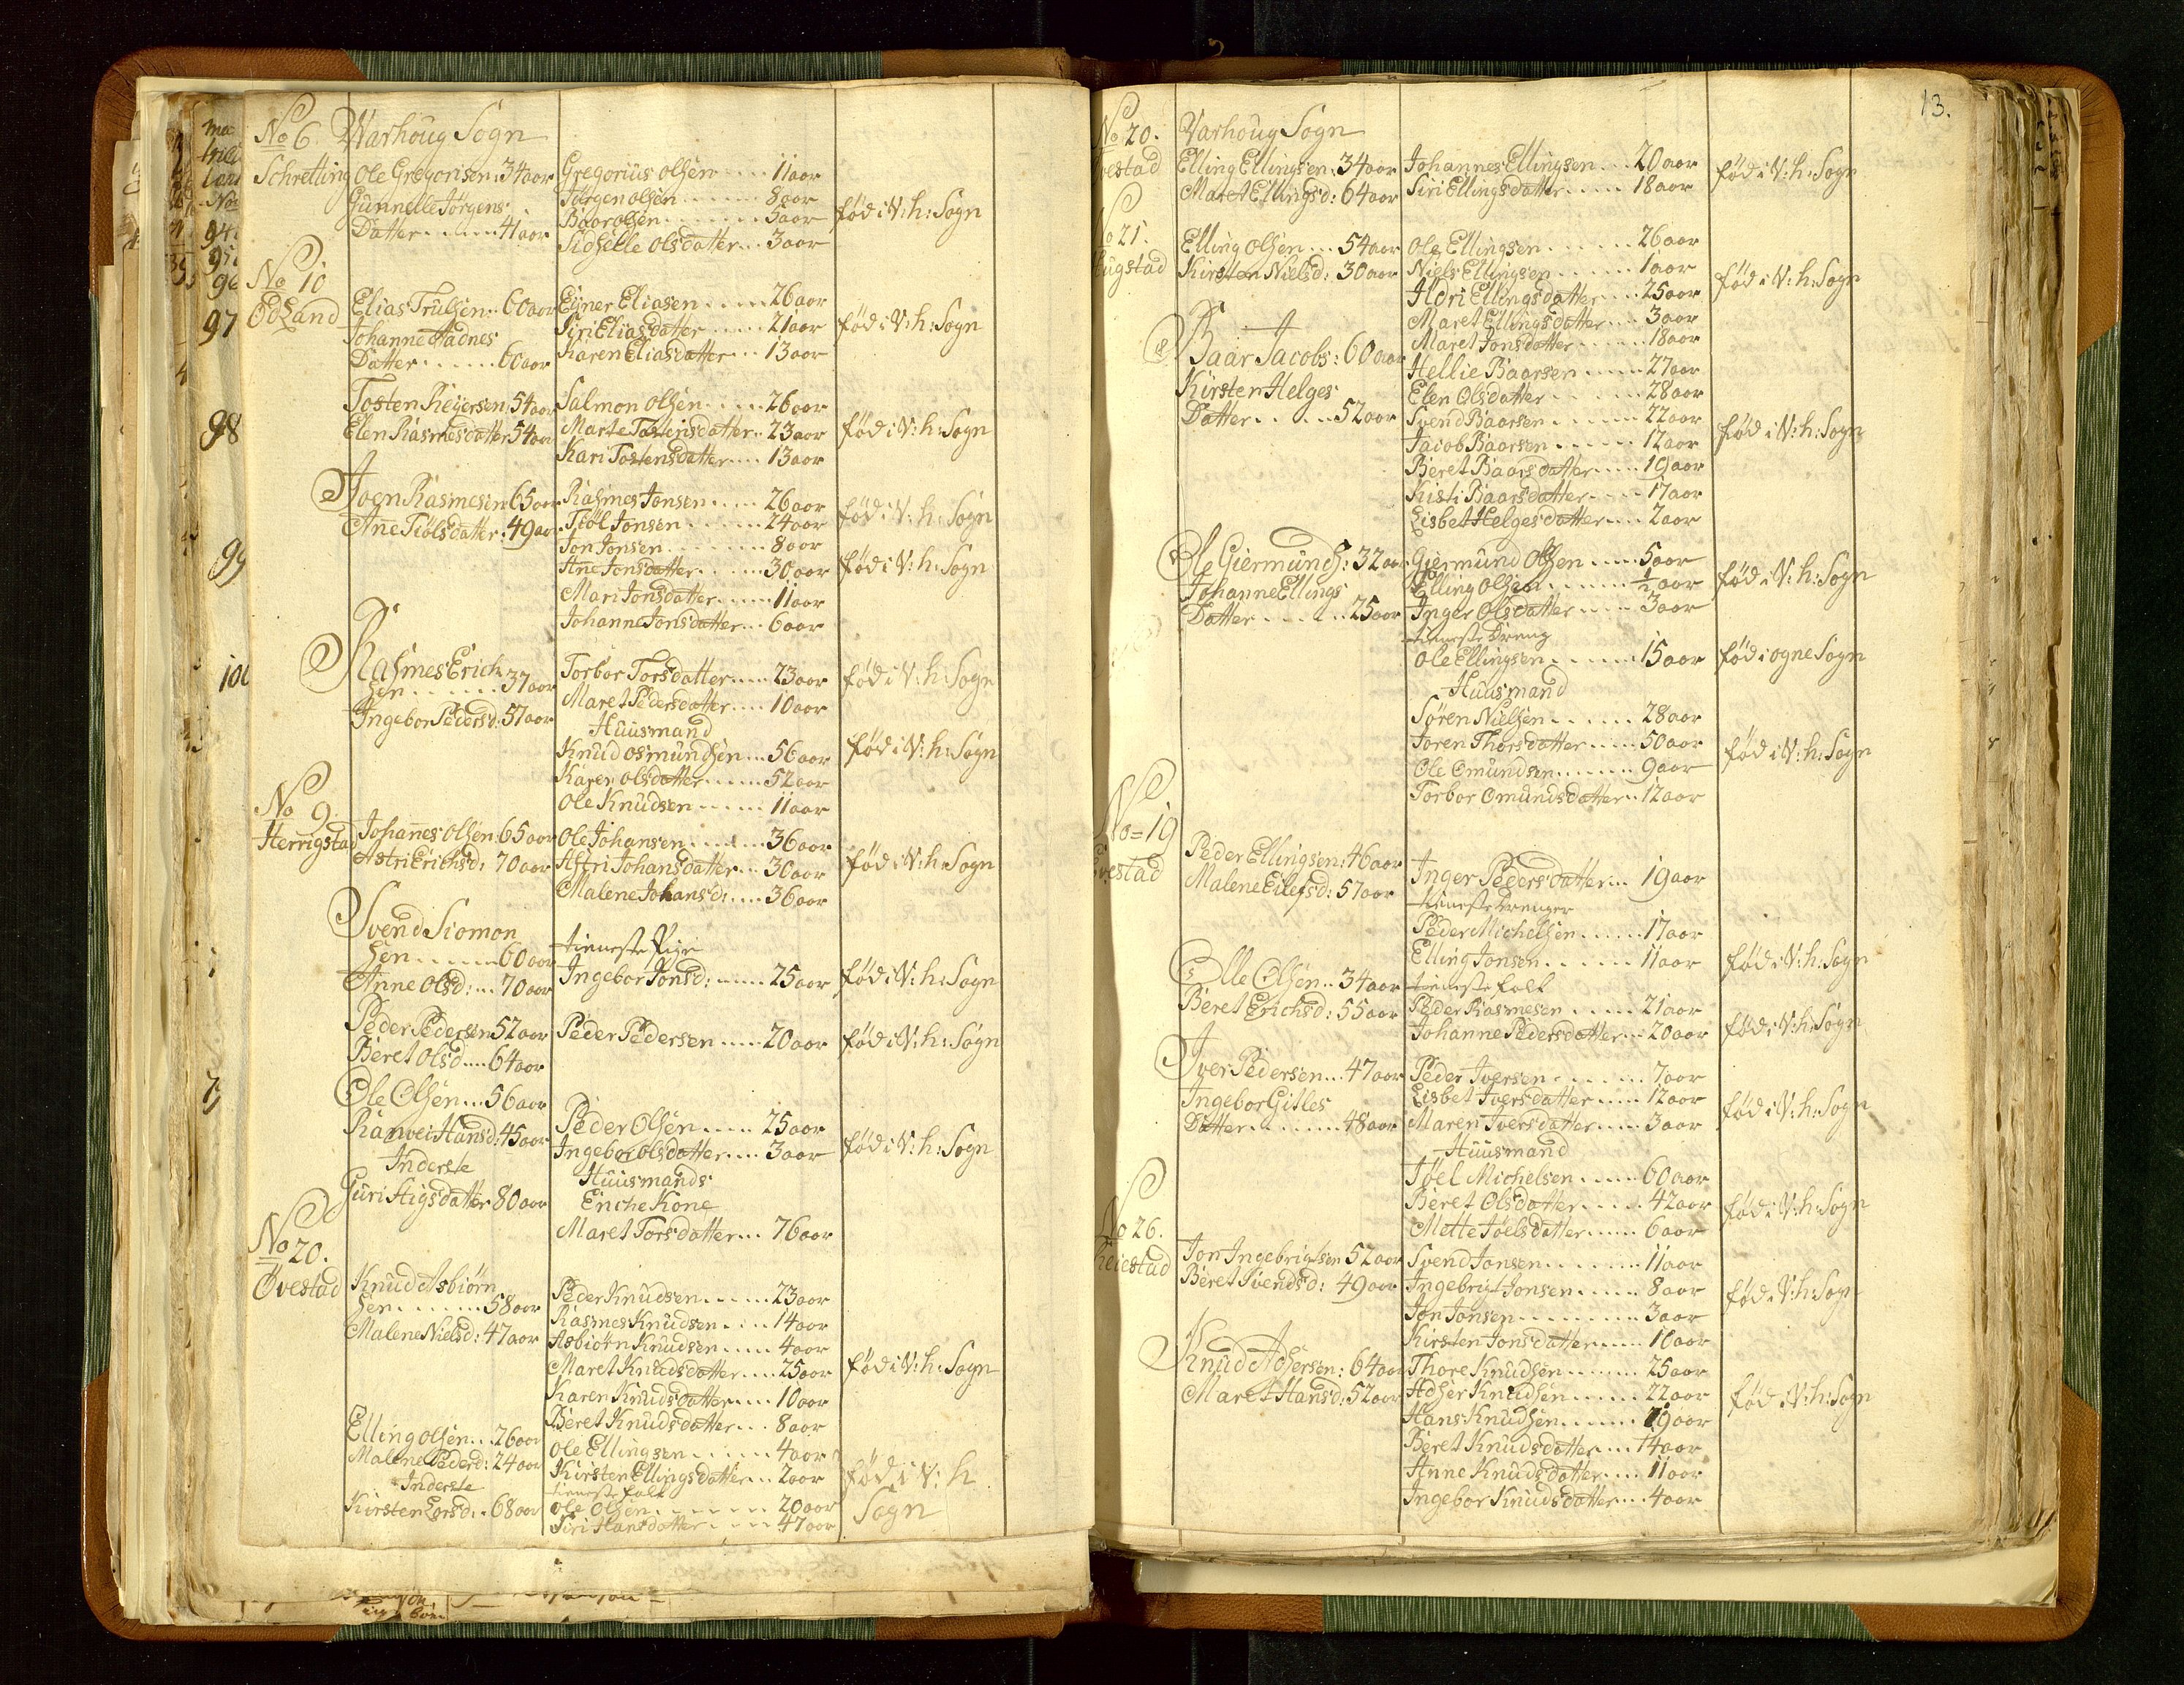 No 6 Warhoug Sogn
Schretting Ole Gregorisen: 34 aar Gregorius olsen .... 11 aar
Gunnelle Jørgens Jørgen olsen ...... 8 aar
Datter ..... 41 aar Baar olsen ...... 5 aar fød i V: h: Sogn
Sidselle olsdatter ... 3 aar
No 10
Ødland Elias Trulsen .. 60 aar Ejner Eliasen ..... 26 aar
Johanne Siri Eliasdatter ..... 21 aar fød i V: h: Sogn
Datter ...... 60 aar Karen Eliasdatter ... 13 aar
Tosten Reijersen: 54 aar Salmon olsen ..... 26 aar
Elen Rasmesdatter 54 aar Marte Tostensdatter .. 23 aar fød i V: h: Sogn
Kari Tostensdatter .... 13 aar
Joen Rasmesen 65 aar Rasmes Jonsen ..... 26 aar fød i V: h: Sogn
Ane Tiølsdatter: 49 aar Tiøl Jonsen ...... 24 aar
Jon Jonsen ........ 8 aar
Ane Jonsdatter ...... 30 aar fød i V: h: Sogn
Mari Jonsdatter ..... 11 aar
Johanne Jonsdatter ... 6 aar
Rasmes Erich Torbor Torsdatter ..... 23 aar fød i V: h: Sogn
Sen ....... 37 aar Maret Pedersdatter .... 10 aar
Ingebor Pedersd: 57 aar Huusmand
Knud osmundsen ... 56 aar fød i V: h: Sogn
Karen olsdatter ...... 52 aar
No 9 Ole Knudsen ...... 11 aar
Herrigstad Johanes olsen 65 aar Ole Johansen ....... 36 aar
Astri Erichsd: 70 aar Astri Johansdatter ... 30 aar fød i V: h: Sogn
Malene Johansd: .... 36 aar
Svend Siomon
Sen ...... 60 aar tieneste Pige
Anne olsd: ... 70 aar Ingebor Jonsd: ...... 25 aar fød i V: h: Sogn
Peder Pedersen 52 aar Peder Pedersen ..... 20 aar fød i V: h: Sogn
Beret olsd .... 64 aar
Ole Olsen ... 56 aar
Ranvei Hansd: 45 aar Peder Olsen ..... 25 aar
Inderste Ingebor olsdatter .... 3 aar fød i V: h: Sogn
Guri Stigsdatter 80 aar Huusmands
Enche Kone
Maret Torsdatter ... 76 aar
No 20.
Øvestad Knud Asbiørn Peder Knudsen ...... 23 aar
Sen ....... 58 aar Rasmes Knudsen .... 14 aar
Malene Nielsd: 47 aar Asbiørn Knudsen ..... 4 aar
Maret Knudsdatter .... 25 aar fød i V: h: Sogn
Karen Knudsdatter .... 10 aar
Beret Knudsdatter ... 8 aar
Elling olsen ... 26 aar Ole Ellingsen ...... 4 aar
Malene Pedersd: 24 aar Kirsten Ellingsdatter ... 2 aar fød i V: h
Inderste tieneste folk
Kirsten Larsd: . 68 aar ole Olsen ........ 20 aar Sogn
Siri Hansdatter .... 47 aar
94
95
96
97
98
99
100
13.
No 20. Varhoug Sogn
Elling Ellingsen: 34 aar Johannes Ellingsen ... 20 aar
Maret Ellingsd: 64 aar Siri Ellingsdatter ..... 18 aar fød i V: h: Sogn
No 21.
Elling olsen ... 54 aar Ole Ellingsen ....... 26 aar
Kirsten Nielsd: 30 aar Niels Ellingsen ...... 1 aar fød i V: h: Sogn
Aldri Ellingsdatter ... 25 aar
Maret Ellingsdatter ... 3 aar
Baar Jacobs: 60 aar Maret Jonsdatter ..... 18 aar
Hellie Baarsen ..... 27 aar
Kirsten Helges Elen Olsdatter ...... 28 aar
Datter ...... 52 aar Svend Baarsen ...... 22 aar
Jacob Baarsen ...... 12 aar fød i V: h: Sogn
Beret Baarsdatter ..... 19 aar
Kisti Baarsdatter ..... 17 aar
Lisbet Helgesdatter .... 2 aar
Ole Giermunds: 32 aar Giermund Olsen ..... 5 aar
Johanne Ellings Elling olsen ....... ½ aar fød i V: h: Sogn
Datter ...... 25 aar Inger Olsdatter ..... 3 aar
tieneste Dreng
Ole Ellingsen ...... 15 aar fød i ogne Sogn
Huusmand
Søren Nielsen ...... 28 aar
Joren Thorsdatter ..... 50 aar
Ole Omundsen ....... 9 aar fød i V: h: Sogn
Torbor Omundsdatter .. 12 aar
No=19
Peder Ellingsen: 46 aar Inger Pedersdatter ... 19 aar
Malene Eilefsd: 57 aar tieneste Drenger
Peder Michelsen ...... 17 aar
Elling Jonsen ...... 11 aar fød i V: h: Sogn
Olle Olsen .. 34 aar tieneste folk
Beret Erichsd: 55 aar Peder Rasmesen ..... 21 aar
Johanne Pedersdatter ... 20 aar fød i V: h: Sogn
Iver Pedersen ... 47 aar Peder Iversen ....... 7 aar
Ingebor Gitles Lisbet Iversdatter ..... 12 aar fød i V: h: Sogn
Datter ....... 48 aar Maren Iversdatter ..... 3 aar
Huusmand
Joel Michelsen ..... 60 aar
Beret Olsdatter ..... 42 aar fød i V: h: Sogn
Mette Joelsdatter ..... 6 aar
No 26.
Jon Ingebrigtsen 52 aar Svend Jonsen ........ 11 aar
Beret Svendsd: 49 aar Ingebrigt Jonsen ...... 8 aar fød i V: h: Sogn
Jon Jonsen ........ 3 aar
Kirsten Jonsdatter ..... 10 aar
Knud Adsersen: 64 aar Thore Knudsen ....... 25 aar
Maret Hansd: 52 aar Adser Knudsen ...... 22 aar fød i V: h: Sogn
Hans Knudsen ...... 19 aar
Beret Knudsdatter .... 14 aar
Anne Knudsdatter .... 11 aar
Ingebor Knudsdatter .... 4 aar